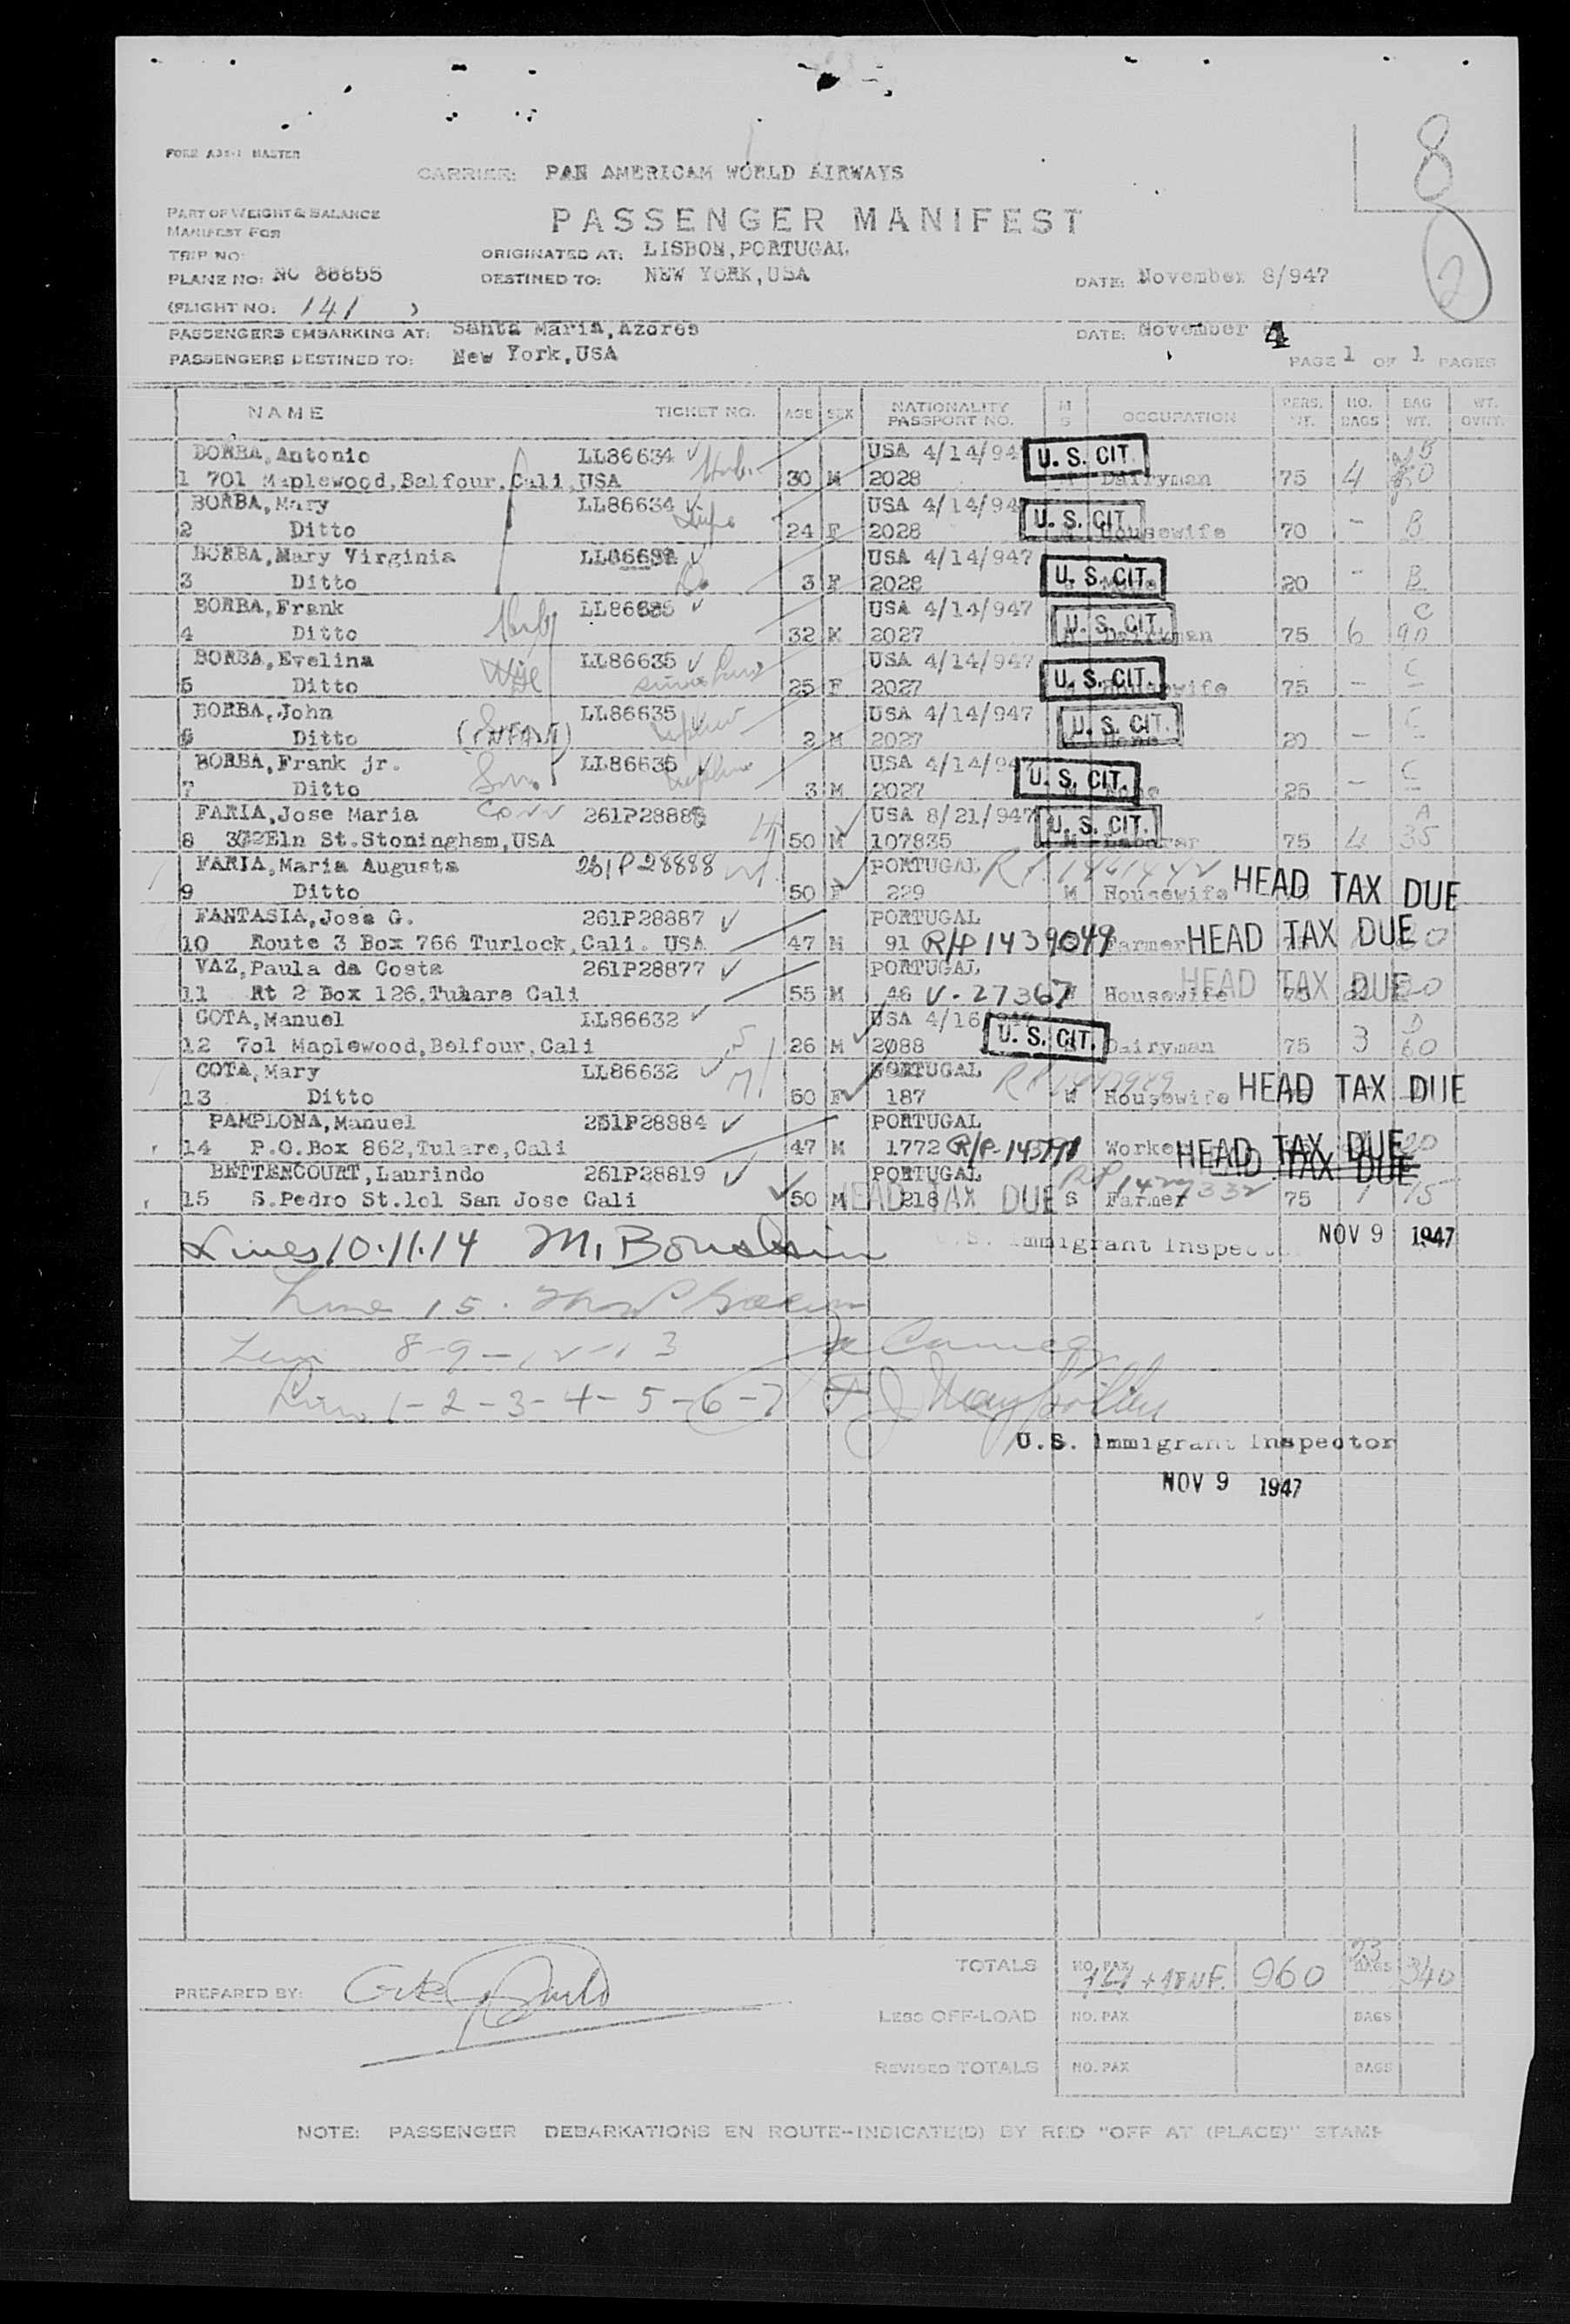 FORM A38-1 MASTER
CARRIER: PAN AMERICAM WORLD AIRWAYS
8
PART OF WEIGHT & BALANCE
PASSENGER MANIFEST
MANIFEST FOR
TRIP NO:
ORIGINATED AT: LISBON,PORTUGAL
2
PLANE NO: NC 88855
DESTINED TO: NEW YORK,USA
DATE: November 8/947
(FLIGHT NO: 141 )
PASSENGERS EMBARKING AT: Santa Maria,Azores
DATE: November
PASSENGERS DESTINED TO: New York,USA
PAGE 1 OF 1 PAGES
NAME TICKET NO. AGE SEX NATIONALITY PASSPORT NO. M S OCCUPATION PERS. WT. NO. BAGS BAG WT. WT. OVWT.
BORBA,Antonio LL86634 USA 4/14/947 U. S. CIT. B
1 701 Maplewood,Balfour,Cali,USA 30 M 2028 Dairyman 75 4
BORBA,Mary LL86634 USA 4/14/94 U. S. CIT.
2 Ditto 24 F 2028 Housewife 70 - B
BORBA,Mary Virginia USA 4/14/947 U. S. CIT.
3 Ditto 3 F 2028 20 - B
BORBA,Frank LL86635 USA 4/14/947 U. S. CIT. C
4 Ditto 32 M 2027 75 6 90
BORBA,Evelina Wife LL86635 USA 4/14/947 U. S. CIT. C
5 Ditto 25 F 2027 Housewife 75 -
BORBA,John LL86635 USA 4/14/947 U. S. CIT. C
6 Ditto (INFANT) 2 M 2027 None 20 -
BORBA,Frank jr. Son LL86635 USA 4/14/947 U. S. CIT. C
7 Ditto 3 M 2027 None 25 -
FARIA,Jose Maria 261P28888 USA 8/21/947 U. S. CIT. A
8 Eln St.Stoningham,USA 50 M 107835 Laborer 75 4 35
FARIA,Maria Augusta 261P28888 PORTUGAL
9 Ditto 50 F 229 M Housewife HEAD TAX DUE
FANTASIA,Jose G. 261P28887 PORTUGAL
10 Route 3 Box 766 Turlock,Cali. USA 47 M 91 R/P 1439049 Farmer HEAD TAX DUE
VAZ,Paula da Costa 261P28877 PORTUGAL
11 Rt 2 Box 126,Tulare Cali 55 M 46 V-27367 Housewife HEAD TAX DUE
COTA,Manuel LL86632 USA 4/16 U. S. CIT. D
12 7ol Maplewood,Belfour,Cali 26 M 2088 Dairyman 75 3 60
COTA,Mary LL86632 PORTUGAL
13 Ditto 60 F 187 Housewife HEAD TAX DUE
PAMPLONA,Manuel 261P28884 PORTUGAL
14 P.O.Box 862,Tulare,Cali 47 M 1772 Worke HEAD TAX DUE
HEAD TAX DUE
BETTENCOURT,Laurindo 261P28819 PORTUGAL
15 S.Pedro St.lol San Jose Cali 50 M 218 HEAD TAX DUE S Farmer 75 1 15
Lines 10.11.14 U.S. Immigrant Inspector NOV 9 1947
Line 15.
8-9-12-13
Lines 1-2-3-4-5-6-7
U.S. Immigrant Inspector
NOV 9 1947
TOTALS NO. PAX 14 + 1 INF. 960 23 BAGS 340
PREPARED BY:
LESS OFF-LOAD NO. PAX BAGS
REVISED TOTALS NO. PAX BAGS
NOTE: PASSENGER DEBARKATIONS EN ROUTE--INDICATE(D) BY RED "OFF AT (PLACE)" STAMP